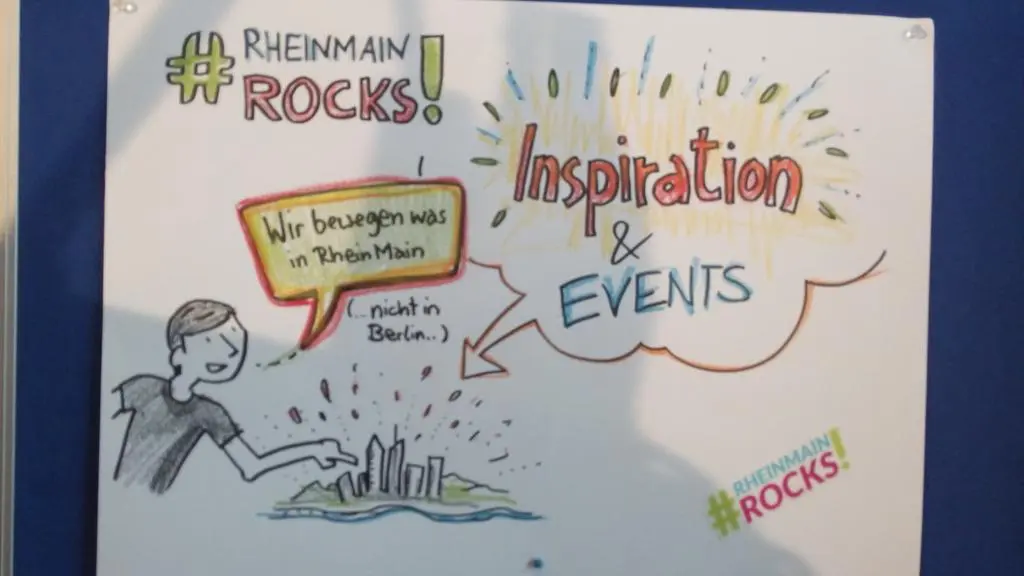 # RHEINMAIN
ROCKS!
Inspiration
&
EVENTS
Wir bewegen was
in RheinMain
(...nicht in
Berlin..)
#RHEINMAIN
ROCKS!